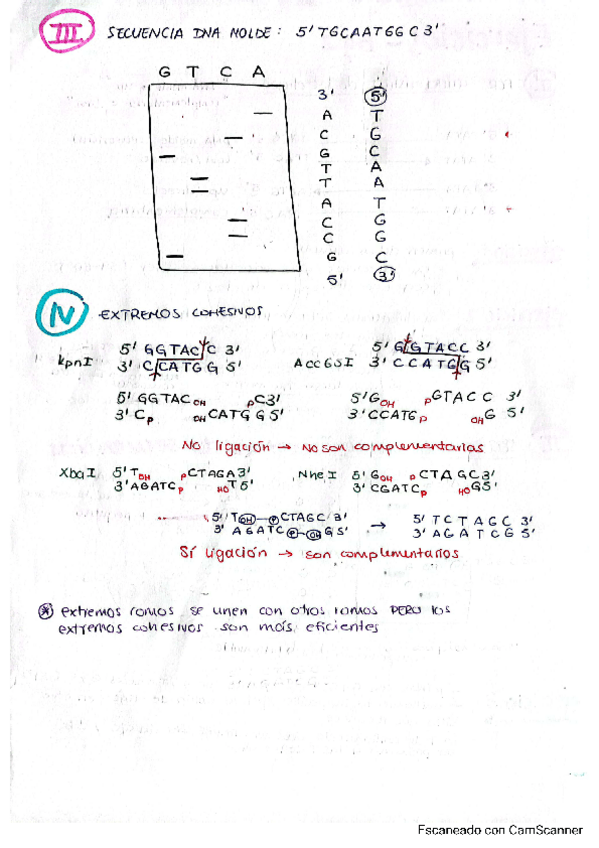 III SECUENCIA DNA MOLDE: 5' TGCAATGGC 3'
G T C A
3' 5'
A T
C G
G C
T A
T A
A T
C G
C G
G C
5' 3'
IV EXTREMOS COHESIVOS
KpnI 5' GGTAC C 3' Acc65I 5' G GTACC 3'
3' C CATGG 5' 3' CCATG G 5'
5' GGTAC OH P C 3' 5' G OH P GTACC 3'
3' C P OH CATGG 5' 3' CCATG P OH G 5'
No ligación → No son complementarias
XbaI 5' T OH P CTAGA 3' NheI 5' G OH P CTAGC 3'
3' AGATC P HO T 5' 3' CGATC P HO G 5'
5' T OH P CTAGC 3' → 5' TCTAGC 3'
3' AGATC P OH G 5' 3' AGATCG 5'
Sí ligación → son complementarios
* extremos romos se unen con otros romos PERO los
extremos cohesivos son más eficientes
Escaneado con CamScanner